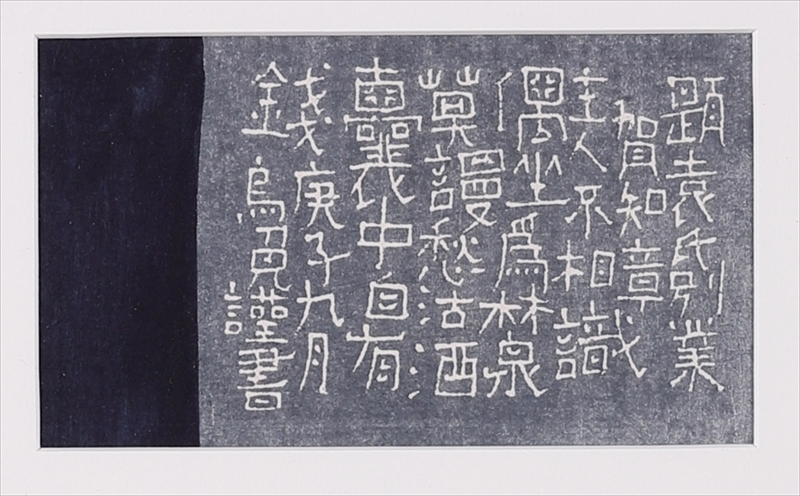 題袁氏別業
賀知章
主人不相識
偶坐爲林泉
莫謾愁沽酒
囊中自有
錢庚子九月
烏 謹書